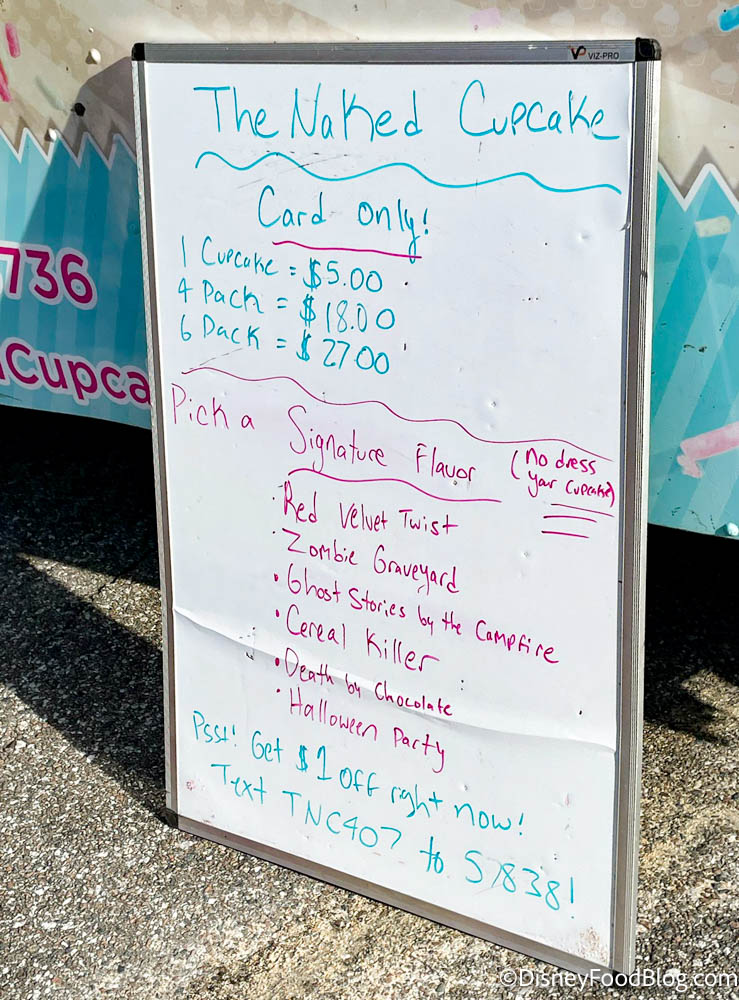 VIZ-PRO
The Naked Cupcake
Card only!
1 Cupcake = $5.00
4 Pack = $18.00
6 Pack = $27.00
736
Cupca
Pick a Signature Flavor (No dress
your cupcake)
• Red Velvet Twist
• Zombie Graveyard
• Ghost Stories by the Campfire
• Cereal Killer
• Death by Chocolate
• Halloween Party
Psst! Get $1 off right now!
Text TNC407 to 57838!
©DisneyFoodBlog.com